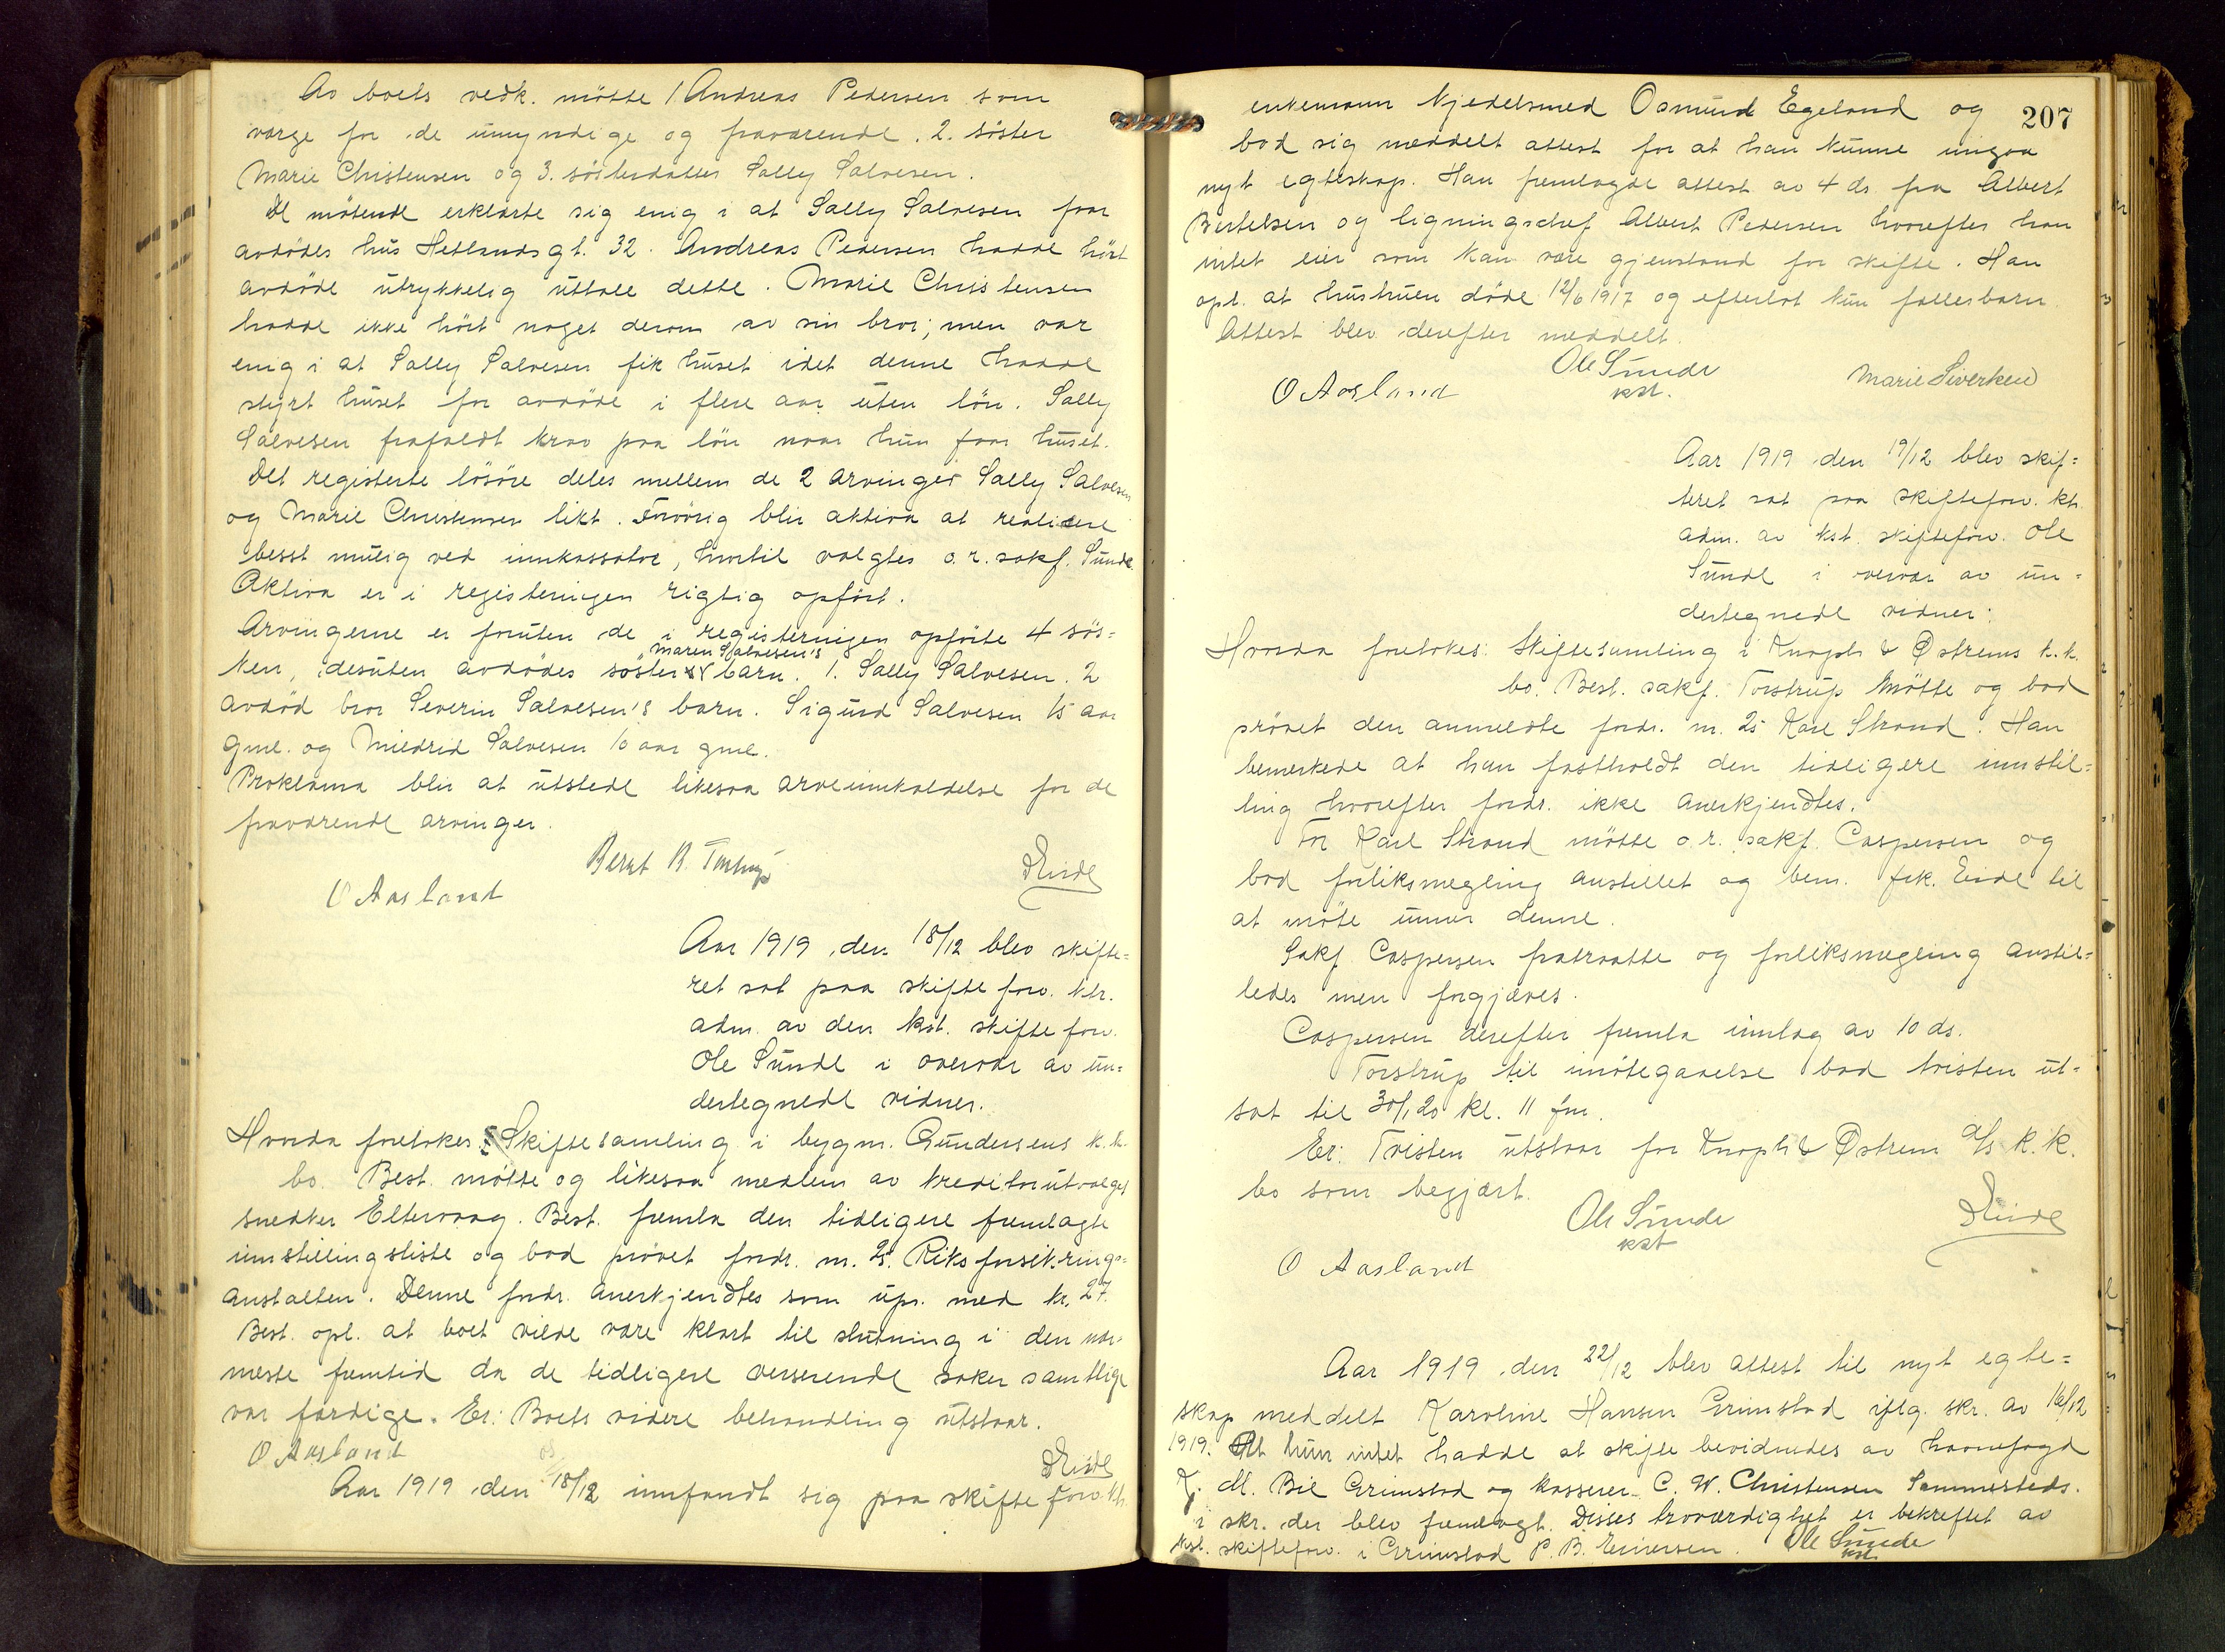 Av boets vedk. møtte 1 Andreas Pedersen som
verge for de umyndige og fraværende. 2. søster
Marie Christensen og 3. søsterdatter Sally Salvesen.
De møtende erklærte sig enig i at Sally Salvesen faar
avdødes hus Hetlandsgt. 32. Andreas Pedersen hadde hørt
avdøde utrykkelig uttale dette. Marie Christensen
hadde ikke hørt noget derom av sin bror, men var
enig i at Sally Salvesen fik huset idet denne hadde
styrt huset for avdøde i flere aar uten løn. Sally
Salvesen frafaldt krav paa løn naar hun faar huset.
Det registerte løsøre deles mellem de 2 arvinger Sally Salvesen
og Marie Christensen likt. Forøvrig blir aktiva at realisere
besst mulig ved innkassator, hvortil valgtes o.r. sakf. Sunde.
Aktiva er i registeringen rigtig opført.
Arvingerne er foruten de i registerningen opførte 4 søs=
ken, desuten avdødes søster Maren Salvesen's barn. 1. Sally Salvesen. 2
avdød bror Severin Salvesen's barn. Sigurd Salvesen 15 aar
gml. og Mildrid Salvesen 10 aar gml.
Proklama blir at utstede likesaa arveinnkaldelse for de
fraværende arvinger.
Bernt B. Torstrup
O Aasland
Eide
Aar 1919 den 18/12 blev skifte=
ret sat paa skifteforv. ktr.
adm. av den kst. skifteforv.
Ole Sunde i overvær av un=
dertegnede vidner.
Hvorda foretokes: Skiftesamling i bygm. Gundersens k.k.
bo. Best. møtte og likesaa medlem av kreditorutvalget
snedker Eltervaag. Best. fremla den tidligere fremlagte
innstillingsliste og bad prøvet fordr. m. 25. Riksforsikrings=
anstalten. Denne fordr. anerkjendtes som upr. med kr. 27.
Best. opl. at boet vilde være klart til slutning i den nær=
meste fremtid da de tidligere verserende saker samtlige
var færdige. Er: Boets videre behandling utstaar.
O Aasland
Eide
Aar 1919 den 18/12 innfandt sig paa skifteforv. ktr.
207
enkemann kjedelsmed Osmund Egeland og
bad sig meddelt attest for at han kunne inngaa
nyt egteskap. Han fremlagde attest av 4 ds. fra Albert
Bertelsen og ligningschef Albert Pedersen hvorefter han
intet eier som kan være gjenstand for skifte. Han
opl. at hustruen døde 12/6 1917 og efterlot kun fællesbarn.
Attest blev derefter meddelt.
Ole Sunde
kst.
O Aasland
Marie Siverken
Aar 1919 den 19/12 blev skif=
teret sat paa skifteforv. ktr.
adm. av kst. skifteforv. Ole
Sunde i overvær av un=
dertegnede vidner:
Hvorda foretokes: Skiftesamling i Knoph & Østrems k.k.
bo. Best. sakf. Torstrup møtte og bad
prøvet den anmeldte fordr. m. 25 Karl Strand. Han
bemerkede at han fastholdt den tidligere innstil=
ling hvorefter fordr. ikke anerkjendtes.
For Karl Strand møtte o.r. sakf. Caspersen og
bad forliksmegling anstillet og bem. frk. Eide til
at møte under denne.
Sakf Caspersen fratraatte og forliksmegling anstil=
ledes men forgjæves.
Caspersen derefter fremla innlæg av 10 ds.
Torstrup til imøtegaaelse bad tvisten ut=
sat til 30/1 20 kl. 11 fm.
Er: Tvisten utstaar for Knoph & Østrem A/S k.k.
bo som begjært.
Ole Sunde
kst
Eide
O Aasland
Aar 1919 den 22/12 blev attest til nyt egte=
skap meddelt Karoline Hansen Grimstad iflg. skr. av 16/12
1919. At hun intet hadde at skifte bevidnedes av havnefogd
J. M. Bie Grimstad og kasserer C. W. Christensen Sammesteds.
i skr. der blev fremlagt. Disses troværdighet er bekreftet av
kst. skifteforv. i Grimstad P. B. Einersen. Ole Sunde
kst.